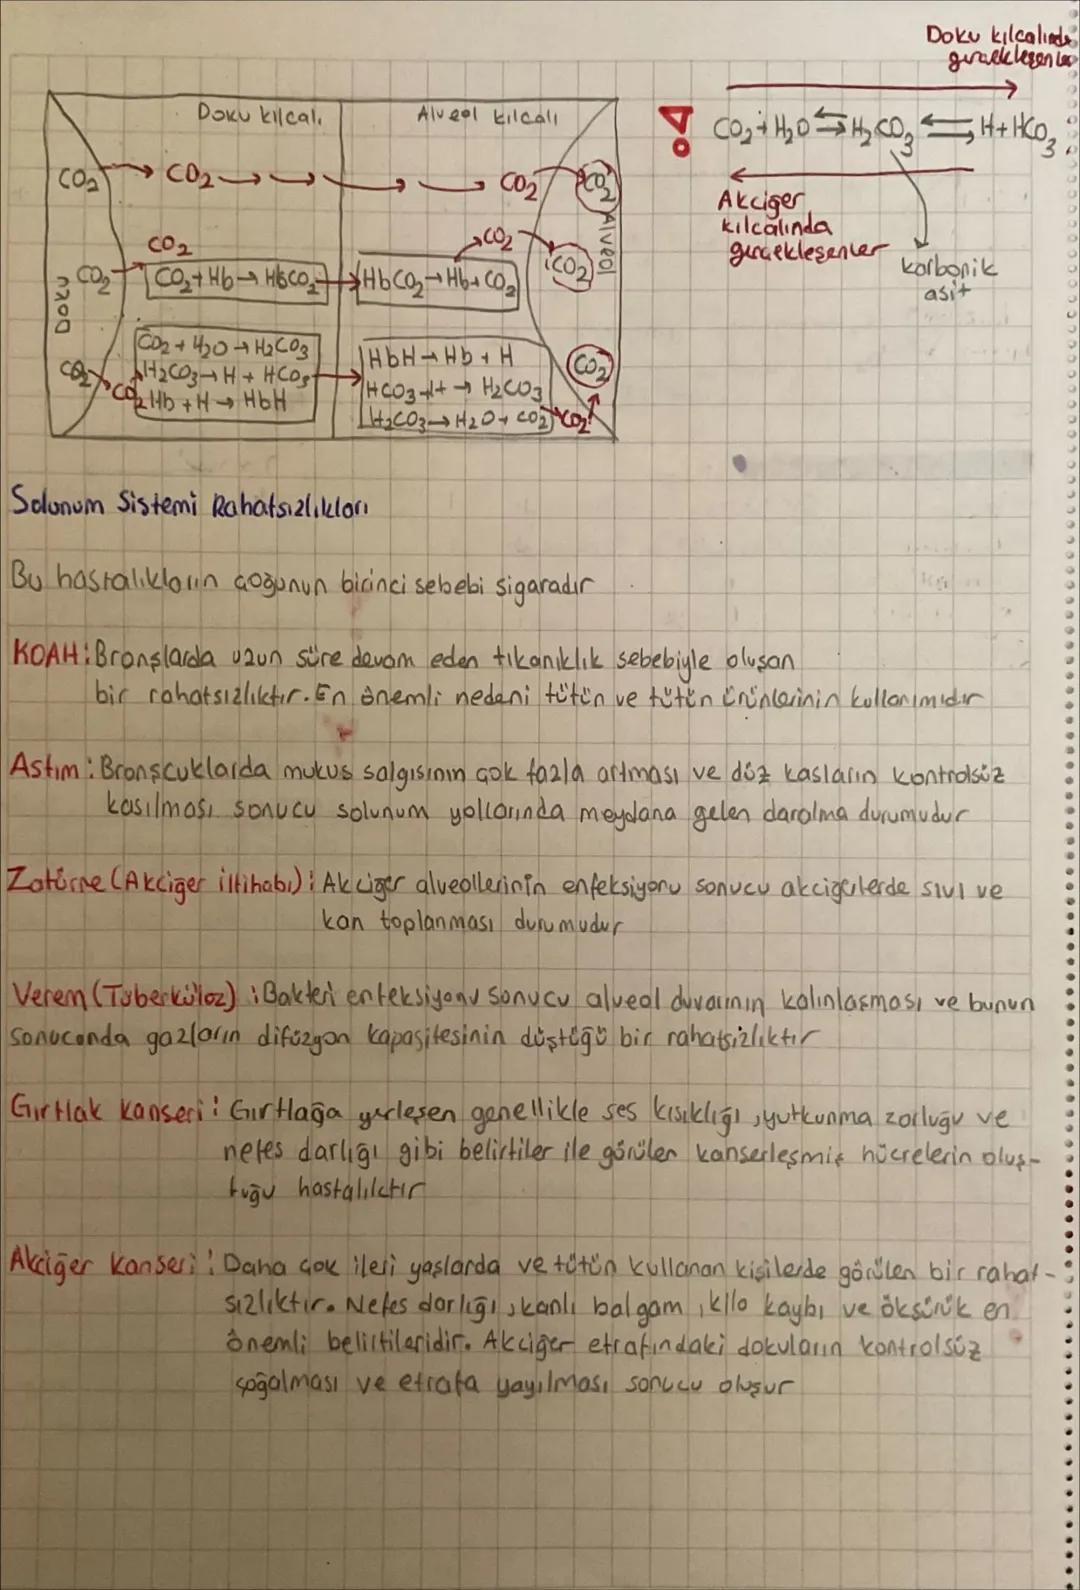 Doku kılcalında
gerçekleşenler
Doku kılcalı
Alveol kılcalı
CO₂ + H₂O ⇌ H₂CO₃ ⇌ H + HCO₃
Akciğer
kılcalında
gerçekleşenler
karbonik
asit
CO₂ → CO₂ → → → → CO₂ CO₂
Doku
Alveol
CO₂ CO₂
CO₂ + Hb → HbCO₂
HbCO₂ → Hb + CO₂
CO₂ CO₂
CO₂ CO₂
CO₂ + H₂O → H₂CO₃
H₂CO₃ → H + HCO₃
Hb + H → HbH
HbH → Hb + H
HCO₃ + H → H₂CO₃
H₂CO₃ → H₂O + CO₂
CO₂ CO₂
Solunum Sistemi Rahatsızlıkları
Bu hastalıkların çoğunun birinci sebebi sigaradır
KOAH: Bronşlarda uzun süre devam eden tıkanıklık sebebiyle oluşan
bir rahatsızlıktır. En önemli nedeni tütün ve tütün ürünlerinin kullanımıdır
Astım: Bronşcuklarda mukus salgısının çok fazla artması ve düz kasların kontrolsüz
kasılması sonucu solunum yollarında meydana gelen daralma durumudur
Zatürre (Akciğer iltihabı): Akciğer alveollerinin enfeksiyonu sonucu akciğerlerde sıvı ve
kan toplanması durumudur
Verem (Tüberküloz): Bakteri enfeksiyonu sonucu alveol duvarının kalınlaşması ve bunun
sonucunda gazların difüzyon kapasitesinin düştüğü bir rahatsızlıktır
Gırtlak kanseri: Gırtlağa yerleşen genellikle ses kısıklığı, yutkunma zorluğu ve
nefes darlığı gibi belirtiler ile görülen kanserleşmiş hücrelerin oluş-
tuğu hastalıktır
Akciğer kanseri: Daha çok ileri yaşlarda ve tütün kullanan kişilerde görülen bir rahat-
sızlıktır. Nefes darlığı, kanlı balgam, kilo kaybı ve öksürük en
önemli belirtileridir. Akciğer etrafındaki dokuların kontrolsüz
çoğalması ve etrafa yayılması sonucu oluşur